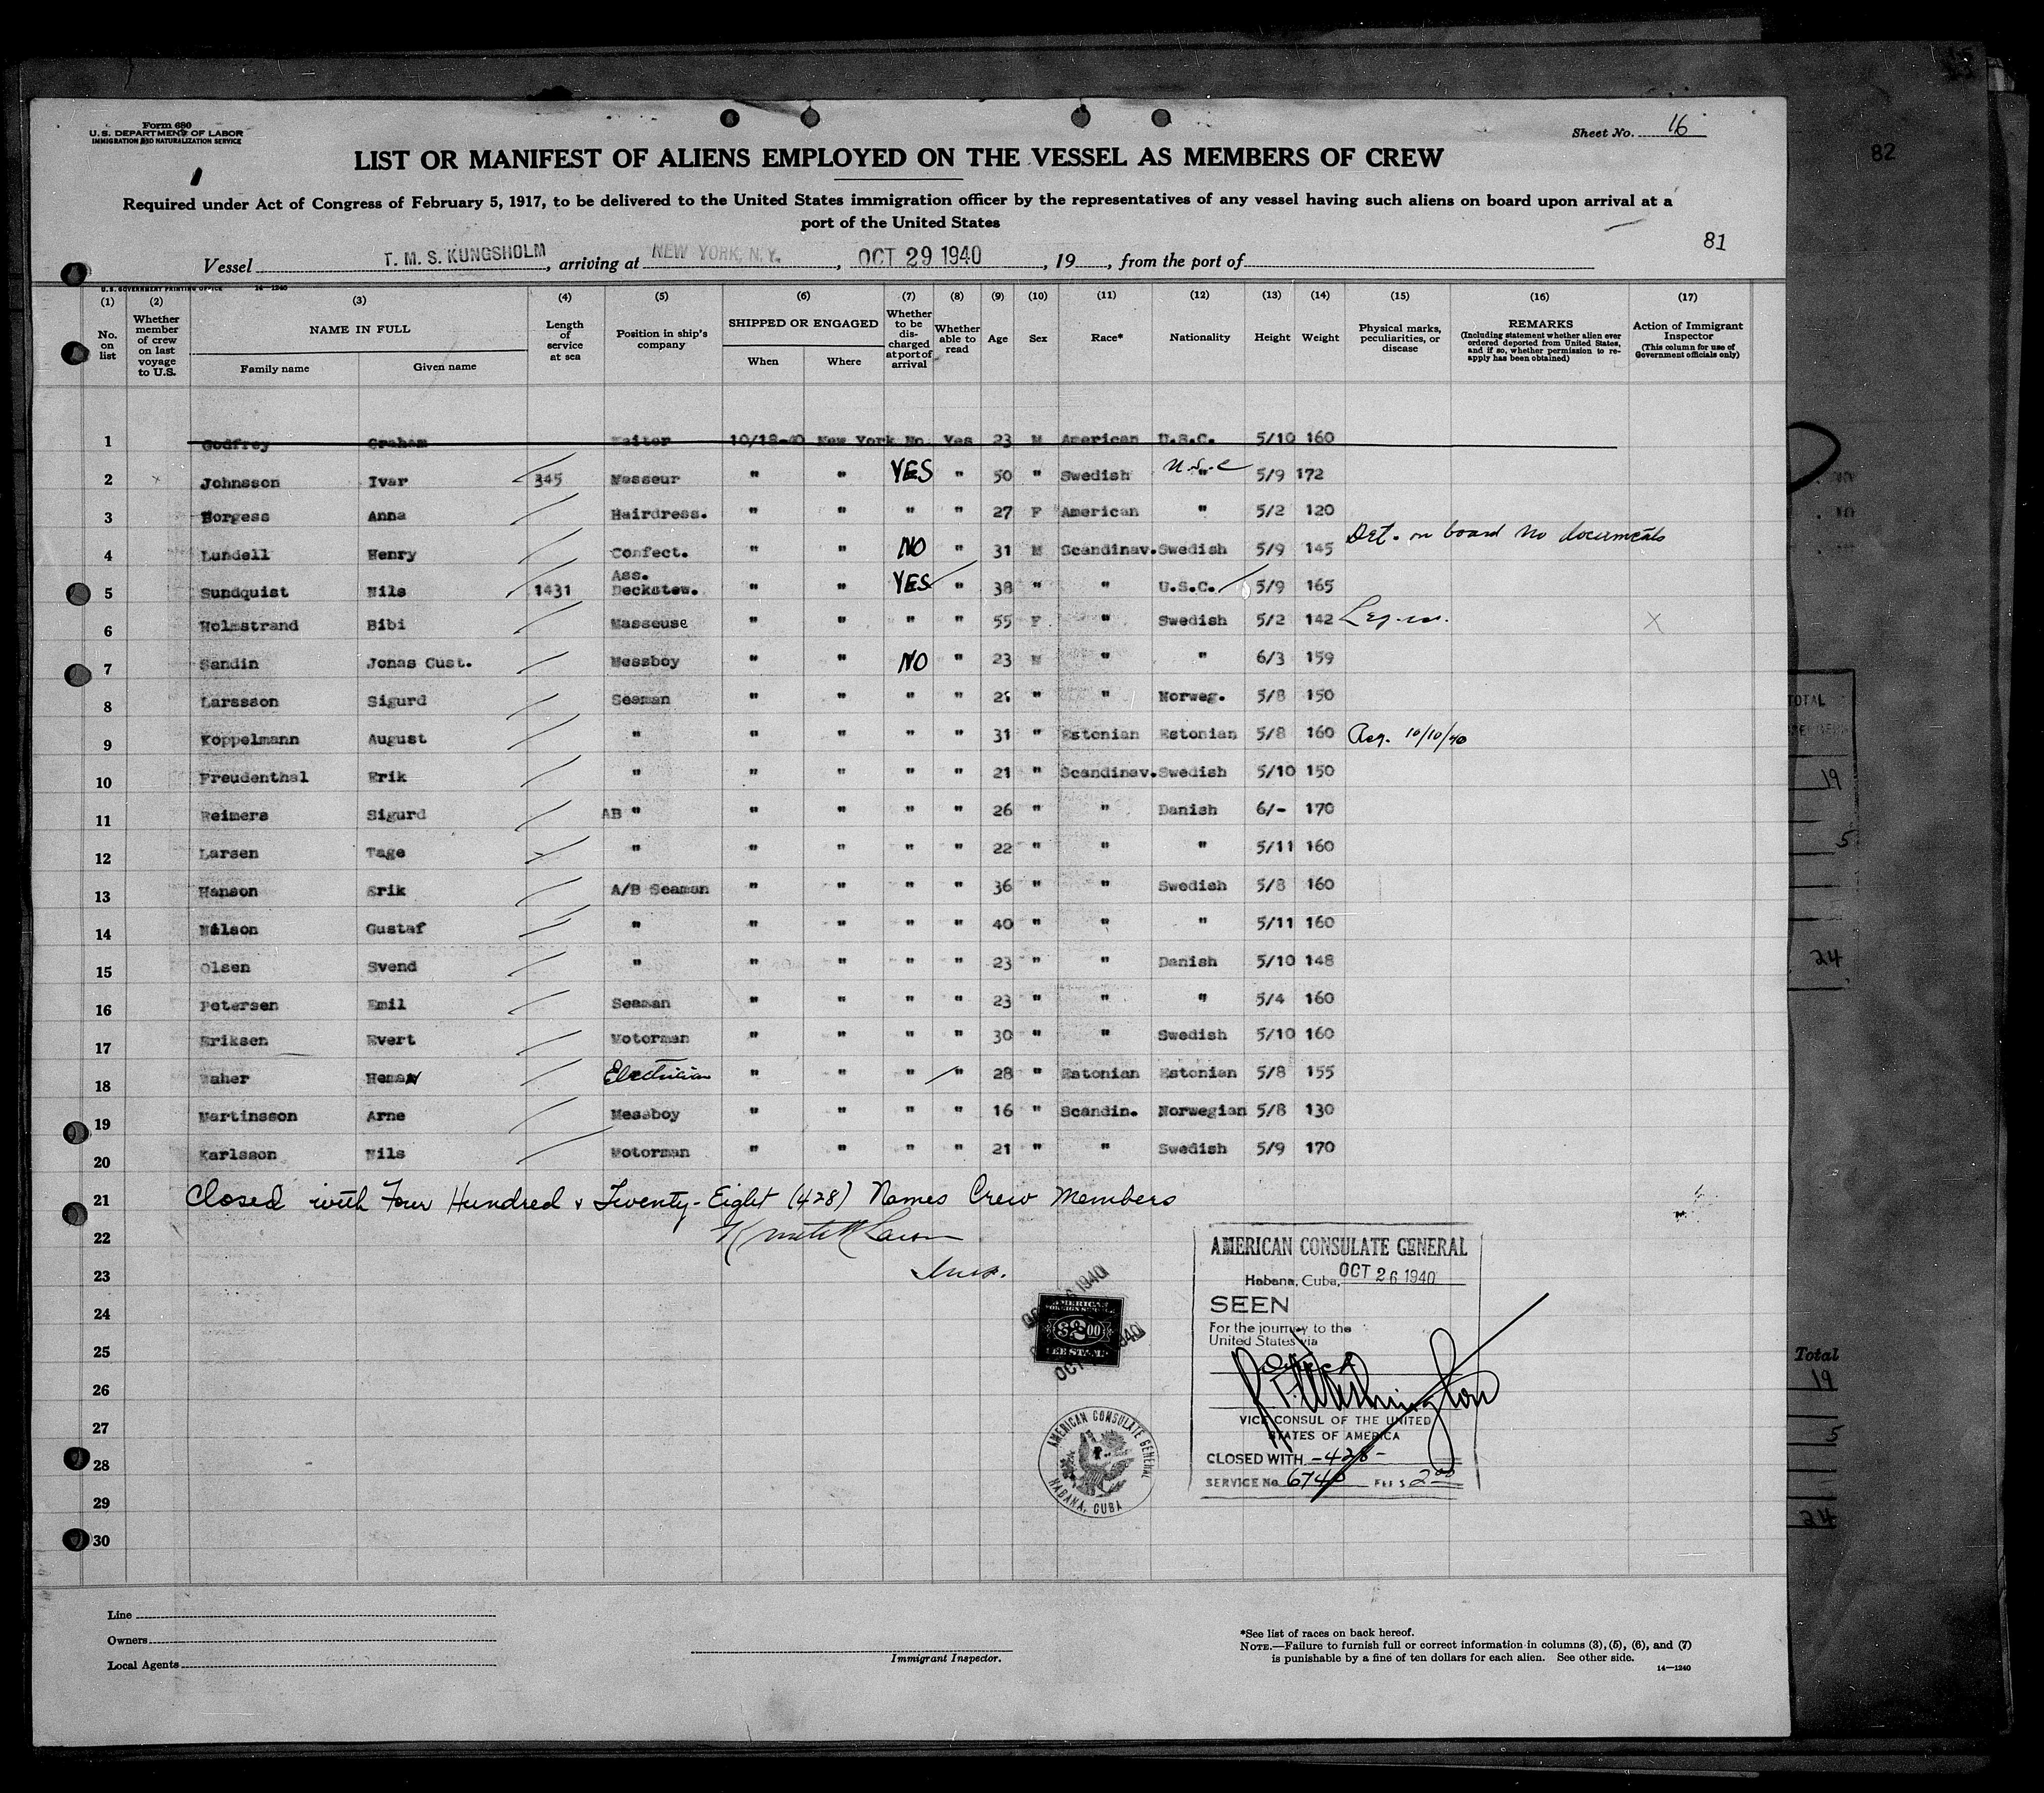 Form 680
U. S. DEPARTMENT OF LABOR
IMMIGRATION AND NATURALIZATION SERVICE
Sheet No. 16
82
LIST OR MANIFEST OF ALIENS EMPLOYED ON THE VESSEL AS MEMBERS OF CREW
Required under Act of Congress of February 5, 1917, to be delivered to the United States immigration officer by the representatives of any vessel having such aliens on board upon arrival at a
port of the United States
81
Vessel T. M. S. KUNGSHOLM, arriving at NEW YORK, N. Y., OCT 29 1940, 19, from the port of
U. S. GOVERNMENT PRINTING OFFICE 14—1240
(1) No. on list
(2) Whether member of crew on last voyage to U.S.
(3) NAME IN FULL Family name Given name
(4) Length of service at sea
(5) Position in ship's company
(6) SHIPPED OR ENGAGED When Where
(7) Whether to be discharged at port of arrival
(8) Whether able to read
(9) Age
(10) Sex
(11) Race*
(12) Nationality
(13) Height
(14) Weight
(15) Physical marks, peculiarities, or disease
(16) REMARKS (Including statement whether alien ever ordered deported from United States, and if so, whether permission to reapply has been obtained)
(17) Action of Immigrant Inspector (This column for use of Government officials only)
1 Godfrey Graham Waiter 10/18-40 New York No. Yes 23 M American U.S.C. 5/10 160
2 x Johnsson Ivar 345 Masseur " " YES " 50 " Swedish U.S.C. " 5/9 172
3 Borgess Anna Hairdress. " " " " 27 F American " 5/2 120
4 Lundell Henry Confect. " " NO " 31 M Scandinav. Swedish 5/9 145 Det. on board no documents
5 Sundquist Nils 1431 Ass. Deckstew. " " YES " 38 " " U.S.C. 5/9 165
6 Holmstrand Bibi Masseuse " " " " 55 F " Swedish 5/2 142 X
7 Sandin Jonas Gust. Messboy " " NO " 23 M " " 6/3 159
8 Larsson Sigurd Seaman " " " " " " Norweg. 5/8 150
9 Koppelmann August " " " " " 31 " Estonian Estonian 5/8 160 10/10/40
10 Freudenthal Erik " " " " " 21 " Scandinav. Swedish 5/10 150
11 Reimers Sigurd AB " " " " " 26 " " Danish 6/- 170
12 Larsen Tage " " " " " 22 " " " 5/11 160
13 Hanson Erik A/B Seaman " " " " 36 " " Swedish 5/8 160
14 Nilson Gustaf " " " " " 40 " " " 5/11 160
15 Olsen Svend " " " " " 23 " " Danish 5/10 148
16 Petersen Emil Seaman " " " " 23 " " " 5/4 160
17 Eriksen Evert Motorman " " " " 30 " " Swedish 5/10 160
18 Electrician " " " " 28 " Estonian Estonian 5/8 155
19 Martinsson Arne Messboy " " " " 16 " Scandin. Norwegian 5/8 130
20 Karlsson Nils Motorman " " " " 21 " " Swedish 5/9 170
21 Closed with Four Hundred & Twenty-Eight (428) Names Crew Members
22
23
24
25
26
27
28
29
30
AMERICAN CONSULATE GENERAL
Habana, Cuba, OCT 26 1940
SEEN
For the journey to the
United States via
VICE CONSUL OF THE UNITED
STATES OF AMERICA
CLOSED WITH -428-
SERVICE No. FEE $ 2 00
AMERICAN
FOREIGN SERVICE
FEE STAMP
AMERICAN CONSULATE GENERAL
HABANA, CUBA
TOTAL
19
5
24
Total
19
5
24
Line
Owners
Local Agents
Immigrant Inspector.
*See list of races on back hereof.
NOTE.—Failure to furnish full or correct information in columns (3), (5), (6), and (7)
is punishable by a fine of ten dollars for each alien. See other side.
14—1240